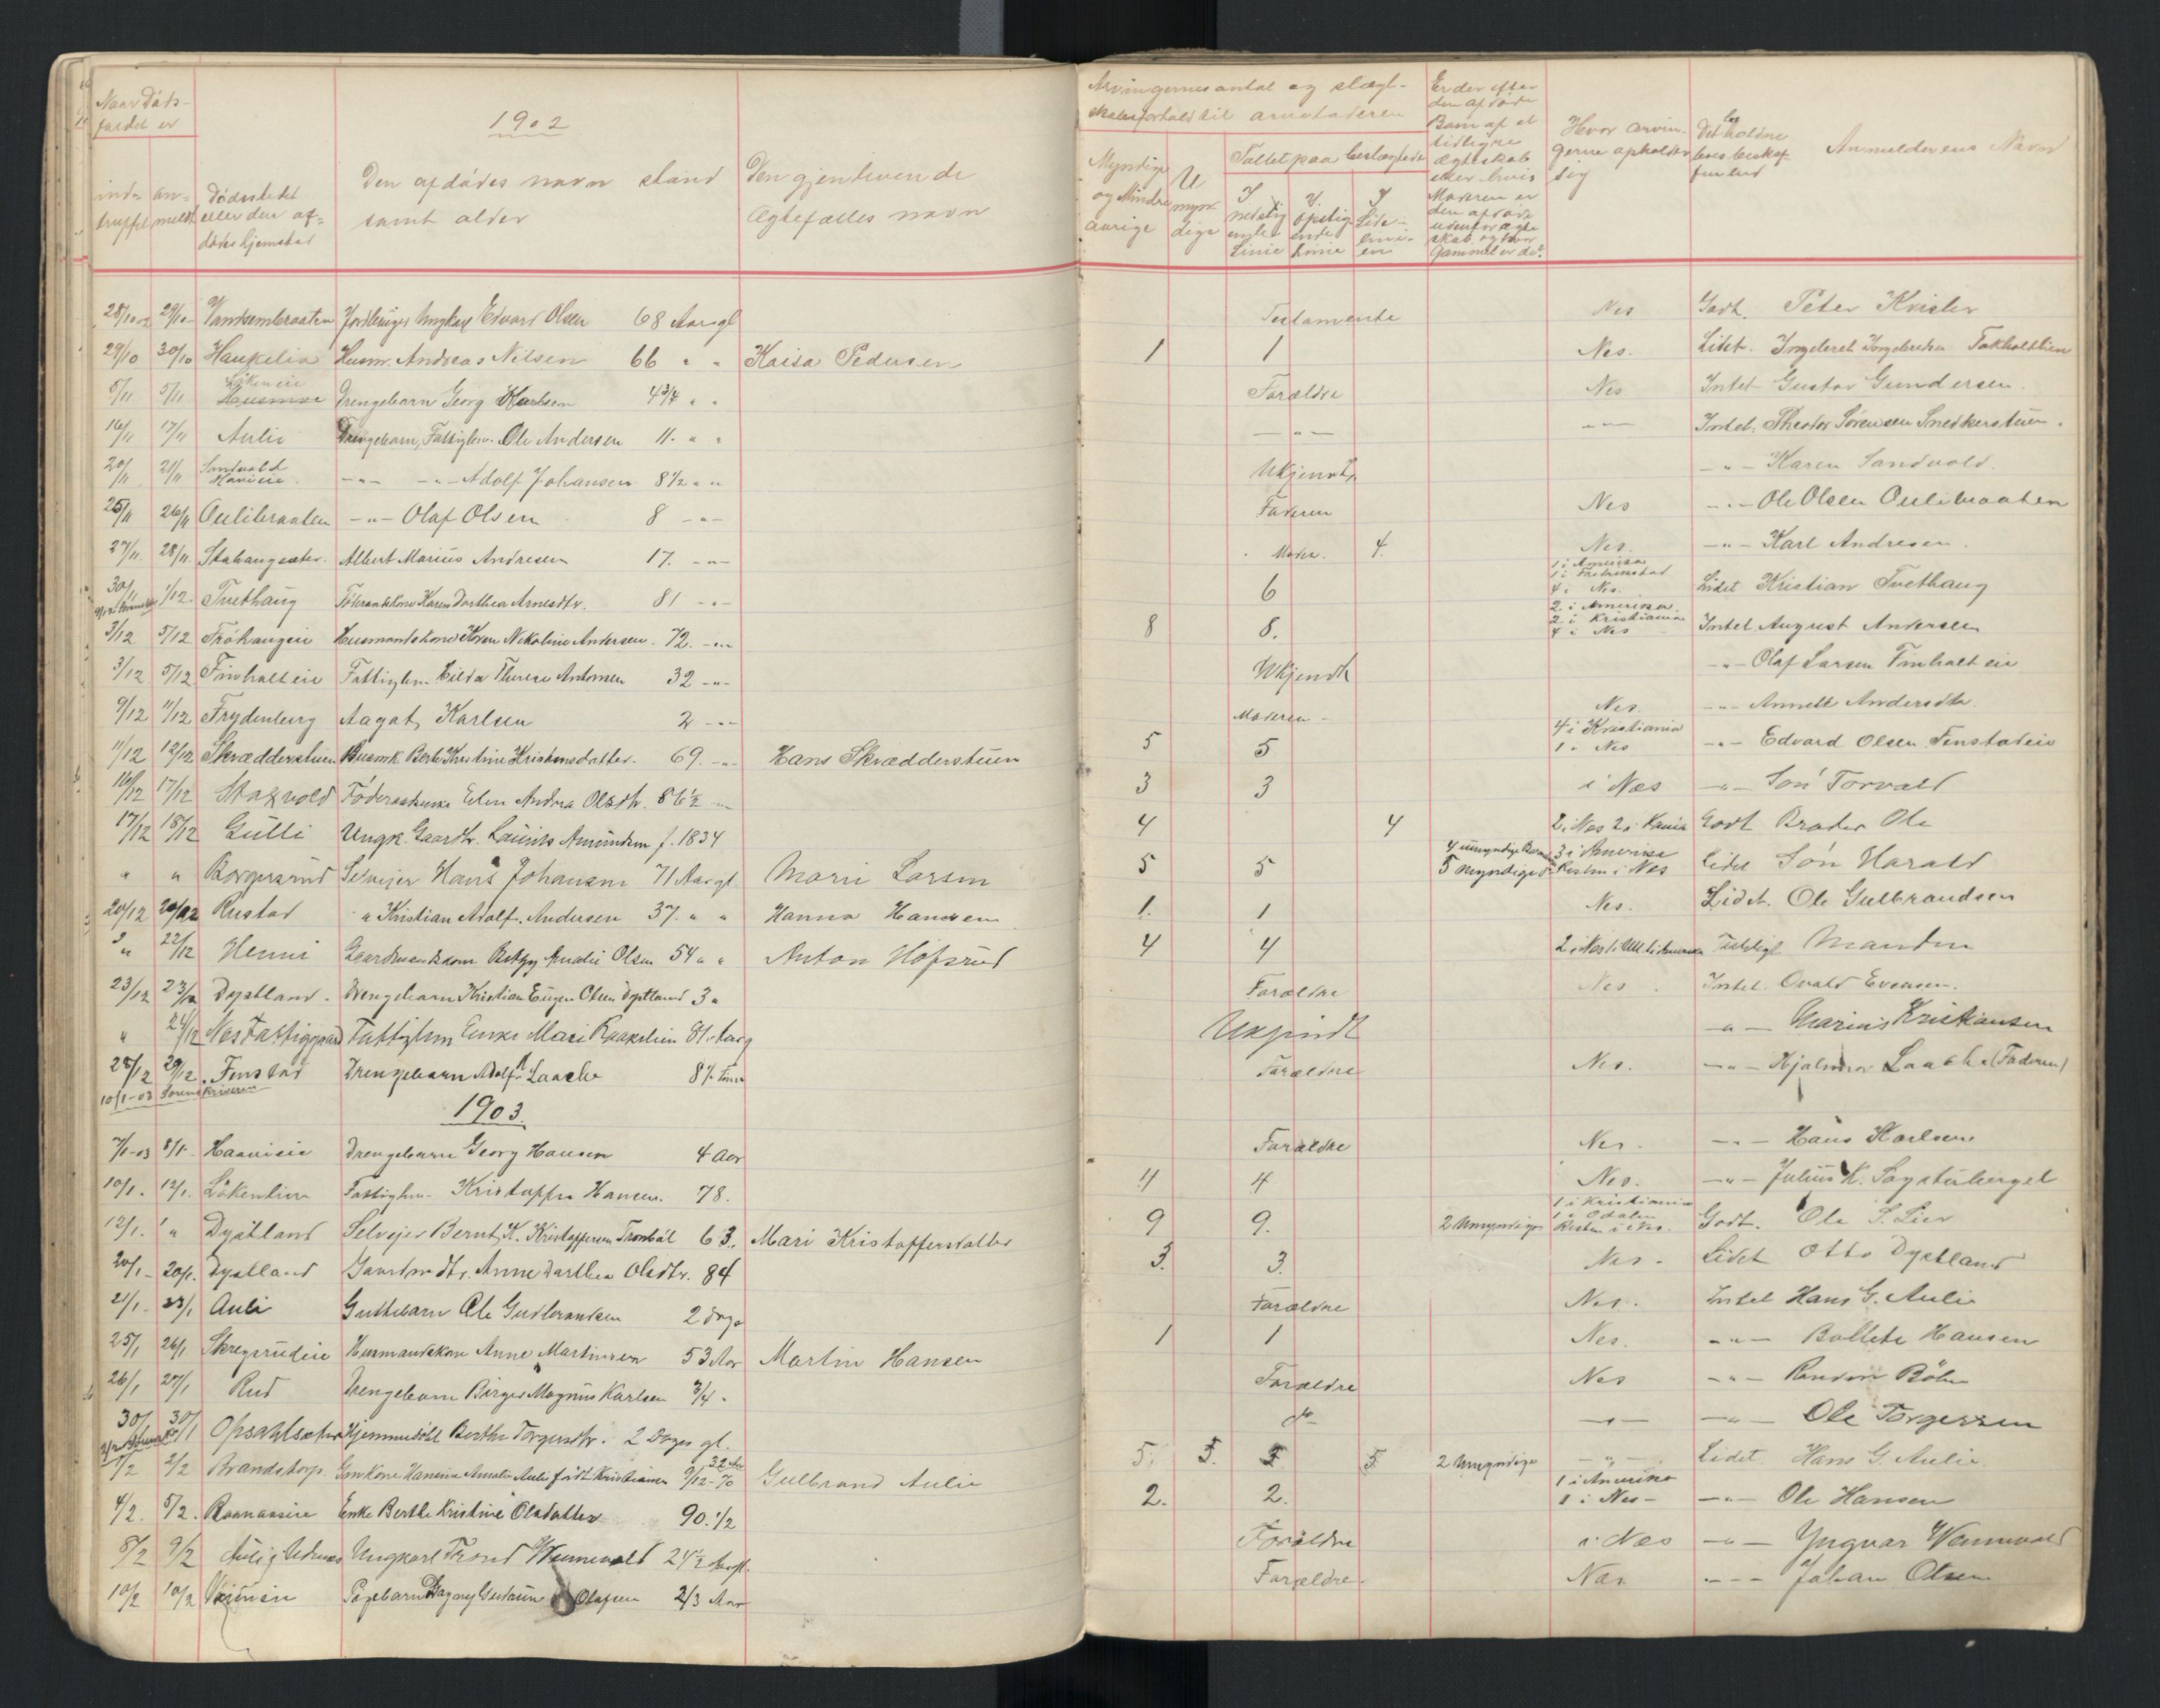 1902
Naar Døds-
faldet er
ind-
truffet
an-
meldt
Dødsstedet
eller den af-
dødes hjemsted
Den afdødes navn stand
samt alder
Den gjenlevende
Ægtefælles navn
Arvingernes antal og slægt-
skabsforhold til arveladeren
Myndige
og Mindre
aarige
U
mynd
dige
Tallet paa beslægtede
I
nedstig
ende
Linie
I
opstig
ende
Linie
I
Side-
lini-
en
Er der efter
den afdøde
Barn af et
tidligere
Ægteskab
eller hvis
Moderen er
den afdøde
udenfor ægte
skab, og hvor
gammel er det.
Hvor arvin-
gerne opholder
sig
Det holdne
boes beskaf-
fenhed
Anmelderens Navn
28/10 29/10 Jordbruger Ungkarl Edvard Olsen 68 Aar gl Testamente Nes Godt. Peter Kvisler
29/10 30/10 Haukelia Husm. Andreas Nilsen 66 " " Kaisa Pedersen 1 1 Nes. Lidet. Ingebret Ingebretsen
5/11 5/11 Løken eie Drengebarn Georg Karlsen 4 3/4 " " Forældre Nes Intet Gustav Gundersen.
16/11 17/11 Aulie Drengebarn, Fattiglem. Ole Andersen 11. " " — " — — " — Intet. Theodor Sørensen Snedkerstuen.
20/11 21/11 Sandvold — " — — " — Adolf Johansen 8 1/2 " " Ukjendt — " — Karen Sandvold
25/11 26/11 Oulibraaten — " — Olaf Olsen 8 — " — Faderen Nes — " — Ole Olsen Oulibraaten
27/11. 28/11. Stahaugsæter. Albert Marius Andresen 17. — " — Moder. 4. Nes. — " — Karl Andresen.
30/11 1/12. Tvethaug Føderaadskone Karen Dorthea Arnesdtr. 81 — " — 6 1 i Amerika 1 i Fredrikstad 4 i Nes. Lidet Kristian Tvethaug
3/12 5/12 Trøhaugeie Husmandskone Karen Nikoline Andersen. 72. — " — 8 8. 2 i Amerika 2 i Kristiania 4 i Nes Intet August Andersen
3/12 5/12 Finholt eie Fattiglem. Hilda Therese Antonsen 32 — " — Ukjendt — " — Olaf Larsen Finholt eie
9/12 11/12 Frydenberg Aagot Karlsen 2 — " — Moderen — Nes. — " — Annette Andersdtr.
11/12 12/12 Skrædderstuen Husmk. Berte Kristine Kristensdatter. 69. — " — Hans Skrædderstuen 5 5 4 i Kristiania 1 i Nes — " — Edvard Olsen Fenstadeie
16/12 17/12 Føderaadsenke Elen Andrea Olsdtr. 86 1/2 — " — 3 3 i Næs — " — Søn Torvald
17/12 18/12 Gulli Ungk. Gaardbr. Lauritz Amundsen f. 1834 4 4 2 i Nes 2 i Kania Godt Broder Ole
" " Borgersrud Selvejer Hans Johansen 71 Aar gl. Marie Larsen 5 5 4 umyndige 5 myndige 3 i Amerika Resten i Nes Lidet Søn Harald
20/12 20/12 Rustad " Kristian Adolf. Andersen 37. " " Hanna Hansen 1. 1 Nes. Lidet. Ole Gulbrandsen
" 22/12 Henni Gaardmandskone Amalie Olsen 54 " " Anton Høfsrud 4 4 Manden
23/12 23/12 Dystland. Drengebarn Kristian Eugen Olsen Dystland 3 " Forældre Nes. Intet. Evensen.
" 24/12 Nes Fattiggaard Fattiglem Enke Mari 81 Aar g Ukjendt — " — Marius Kristiansen
28/12 29/12. Fenstad Drengebarn Adolf Laache Forældre Nes. — " — Hjalmar Laache (Faderen)
10/1-03 Sorenskriveren
1903.
7/1-03 8/1. Haanieie Drengebarn Georg Hansen 4 Aar Forældre Nes. — " — Hans Karlsen
10/1. 12/1. Løkenlien Fattiglem. Kristoffer Hansen. 78. 4 4 Nes. — " — Julius K. Sagstuberget
12/1. " Dystland Selvejer Bernt K. Kristoffersen 63. Mari Kristoffersdatter 9 9. 2 Umyndige 1 i Kristiania 1 i Odalen Resten i Nes. Godt. Ole S. Lier
20/1 20/1. Dystland Gaardmdtr. Anne Dorthea Olsdtr. 84 3. 3. Nes. Lidet Otto Dystland
21/1. 23/1 Auli Guttebarn Ole Gudbrandsen 2 Dage Forældre Nes. Intet Hans G. Aulie
25/1 26/1 Skregsrudeie Husmandskone Anne Martinsen 53 Aar Martin Hansen 1 1 Nes. — " — Bollete Hansen
26/1 27/1 Rud Drengebarn Birger Magnus Karlsen 3/4 " Forældre Nes — " — Randine Bøhn
30/1 30/1 Opsahlsæter Hjemmedøbt Berthe Torgersdtr. 2 Dages gl. do — " — — " — Ole Torgersen
1/2 2/2 Brandstorp. Gmkone Hansine Amalie Aulie født Kristiansen 9/12-70 32 Aar Gulbrand Aulie 5. 5. 5 5 2 Umyndige — " — Lidet. Hans G. Aulie
4/2. 5/2. Raanaaseie Enke Berthe Kristine Olsdatter 90. 1/2 2. 2. 1 i Amerika 1 i Nes — — " — Ole Hansen
8/2 9/2 Ungkarl Trond Wennevold 24 1/2 Aar gl. Forældre i Næs — " — Yngvar Wennevold
10/2 10/2 Pigebarn Dagny Gudrun Olafsen 2/3 Aar Forældre. Næs — " — Johan Olsen